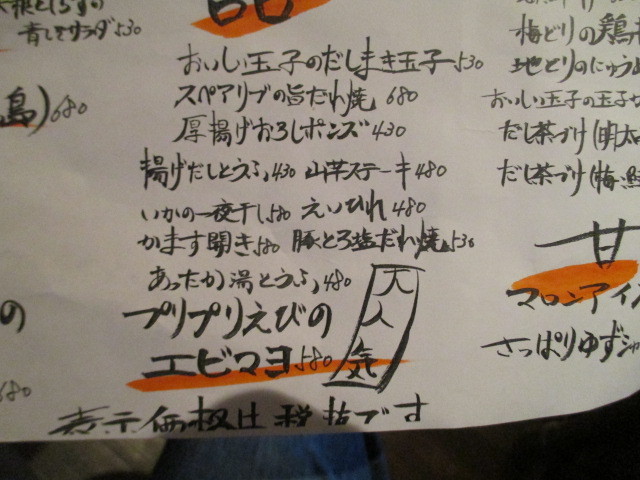 青しそサラダ530
島)680
おいしい玉子のだしまき玉子530
スペアリブの旨だれ焼 680
厚揚げおろしポンズ430
揚げだしとうふ430 山芋ステーキ480
いかの一夜干し580 えいひれ480
かます開き580 豚とろ塩だれ焼530
あったか湯とうふ480
プリプリえびの
エビマヨ580
大人気
表示価格は税抜です
の
680
梅どりの鶏
地とりのにゅうめ
おいしい玉子の玉子
だし茶づけ(明太
だし茶づけ(梅・鮭
甘
マロンアイ
さっぱりゆずシャ